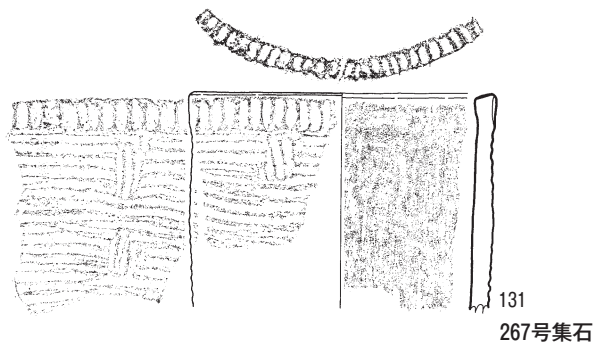 131
267号集石